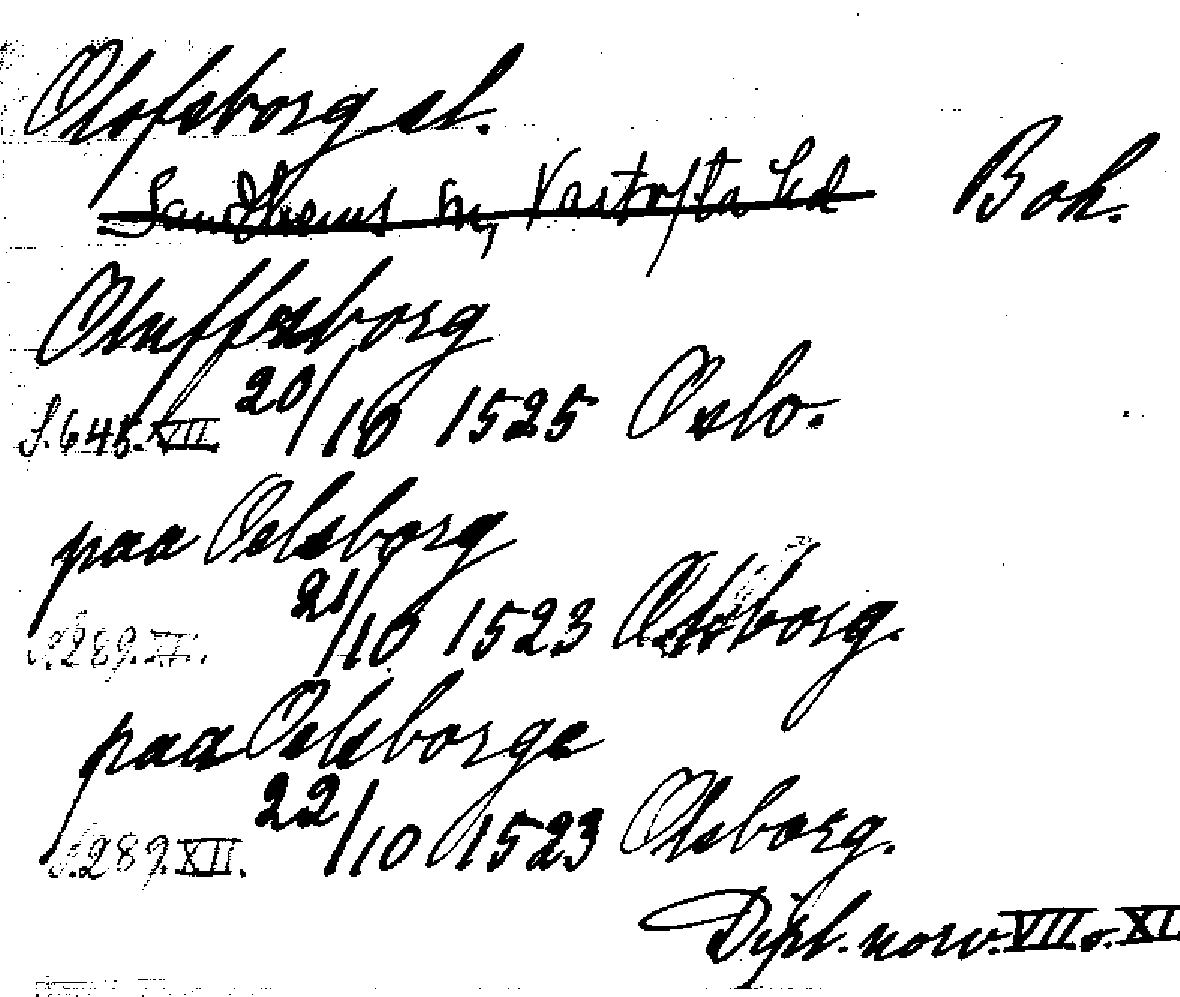 Olofsborg sl.
Sandhems sn, Vartofta hd Boh.
Oluffsborg
S. 645. VII. 20/10 1525 Oslo.
paa Oelsborg
S. 289. XII. 21/10 1523 Olsborg.
paa Oelsborge
S. 289. XII. 22/10 1523 Olsborg.
Dipl. norv. VII o. XII